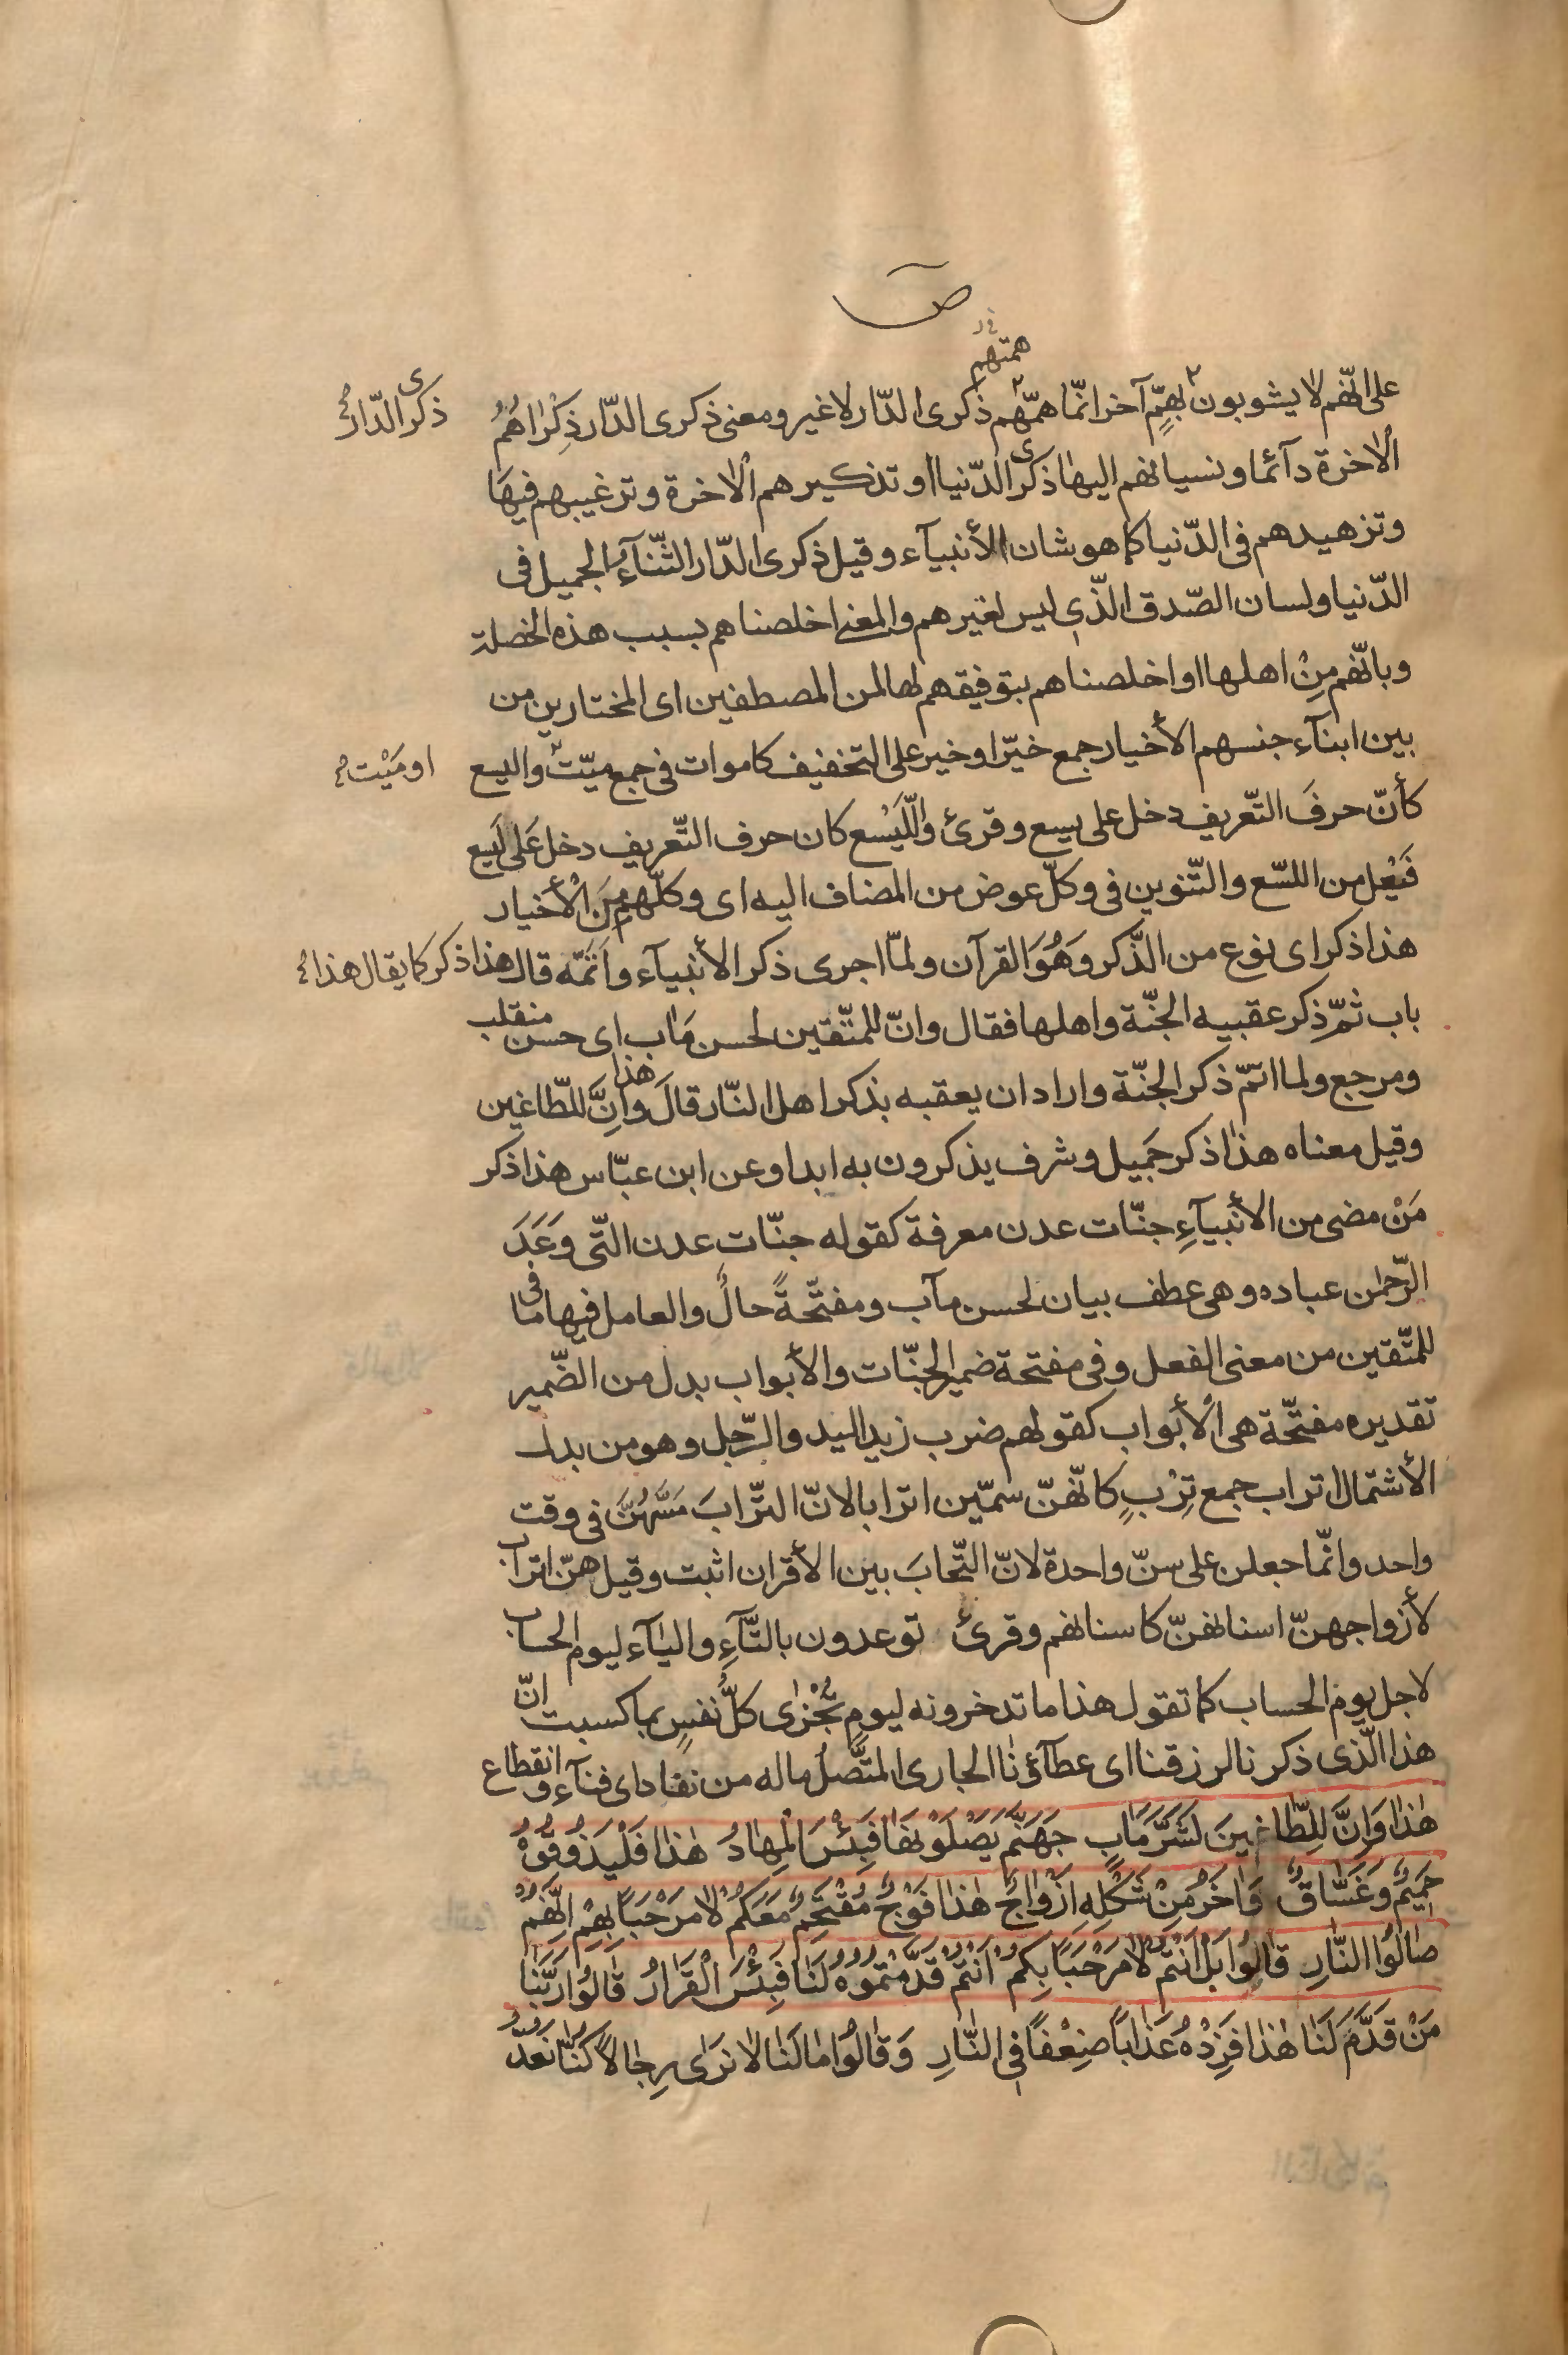 ص
همتهم
على انّهم لا يشوبون بهمٍّ آخر انّما همّهم ذكرى الدّار لا غير ومعنى ذكرى الدّار ذِكْرٰاهُمُ
ذكرى الدّار
الْاخرة دآئما ونسيانهم اليهٰا ذكرى الدّنيا او تذكيرهم الْاخرة وترغيبهم فيهٰا
وتزهيدهم فى الدّنيا كما هو شان الأنبيآء وقيل ذكرى الدّار الثّنآءُ الجميل فى
الدّنيا ولسان الصّدق الّذى ليس لغيرهم والمعنى اخلصناهم بسبب هذه الخصلة
وبانّهم مِنْ اهلها او اخلصناهم بتوفيقهم لها لمن المصطفين اى المختارين من
بين ابنآء جنسهم الأخيار جمع خيّر او خير على التخفيف كاموات فى جمع ميّت واليسع
او مَيْت
كأنّ حرفَ التّعريف دخل على يسع وقرئ واللّيَسْع كان حرف التّعريف دخل عَلى لَيسع
فَيْعل من اللسّع والتّنوين فى وكلّ عوض من المضاف اليه اى وكلّهم مِنَ الْأخيار
هذا ذكر اى نوع من الذّكر وَهُوَ القرآن ولمّا اجرى ذكر الأنبيآء واَتَمّه قال هذا ذكر كما يقال هذا
باب ثمّ ذِكر عقبيه الجنّة واهلها فقال وانّ للمتّقين لحسن مَاٰب اى حسن منقلب
ومرجع ولما اتمّ ذكر الجنّة واراد ان يعقبه بذكر اهل النّار قالَ هذا وَاِنَّ للطّاغين
وقيل معناه هذٰا ذكر جَميل وشرف يذكرون به ابدا وعن ابن عبّاس هذا ذكر
مَنْ مضى من الأنبيآءِ جنّات عدن معرفة كقوله جنّات عدن التّى وَعَدَ
الرّحمٰن عباده وهى عطف بيان لحسن مآب ومفتّحةً حالٌ والعامل فيها ما فى
للمتّقين من معنى الفعل وفى مفتحة ضمير الجنّات والأبواب بدل من الضّمير
تقديره مفتّحة هى الْأبواب كقولهم ضرب زيد اليد والرّجل وهو من بدل
الأشتمال اتراب جمع تِرْبٍ كانّهنّ سمّين اترابا لانّ التّرابَ مَسَّهُنَّ فى وقت
واحد وانّما جعلن على سنّ واحدة لانّ التّحابَ بين الأقران اثبت وقيل هنّ اتراب
لأزواجهنّ اسنانهنّ كاسنانهم وقرئ توعدون بالتّآءِ واليٰآء ليوم الحساب
لاجل يوم الحساب كما تقول هذا ما تدخرونه ليوم تُجْزٰى كلُّ نفسٍ بما كسبت انّ
هذا الّذى ذكرنا لرزقنا اى عطآؤنٰا الجارى المتَّصلُ ما له من نفاد اى فنآء وانقطاع
هٰذٰا وَاِنَّ لِلطّٰاغِينَ لَشَرَّ مَاٰبٍ جَهَنَّمَ يَصْلَوْنَهٰا فَبِئْسَ الْمِهٰادُ هٰذٰا فَلْيَذُوقُوهُ
حَمِيمٌ وَغَسّٰاقٌ وَاٰخَرُ مِنْ شَكْلِهِ اَزْوٰاجٌ هٰذٰا فَوْجٌ مُقْتَحِمٌ مَعَكُمْ لٰا مَرْحَبًا بِهِمْ اِنَّهُمْ
صٰالُوا النّٰارِ قٰالُوا بَلْ اَنْتُمْ لٰا مَرْحَبًا بِكُمْ اَنْتُمْ قَدَّمْتُمُوهُ لَنٰا فَبِئْسَ الْقَرٰارُ قٰالُوا رَبَّنٰا
مَنْ قَدَّمَ لَنٰا هٰذٰا فَزِدْهُ عَذٰابًا ضِعْفًا فِى النّٰارِ وَقٰالُوا مٰا لَنٰا لٰا نَرٰى رِجٰالًا كُنّٰا نَعُدُّ